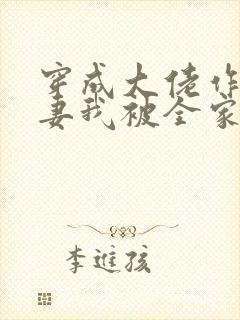 穿成大佬作
妻我被全家
李进孩